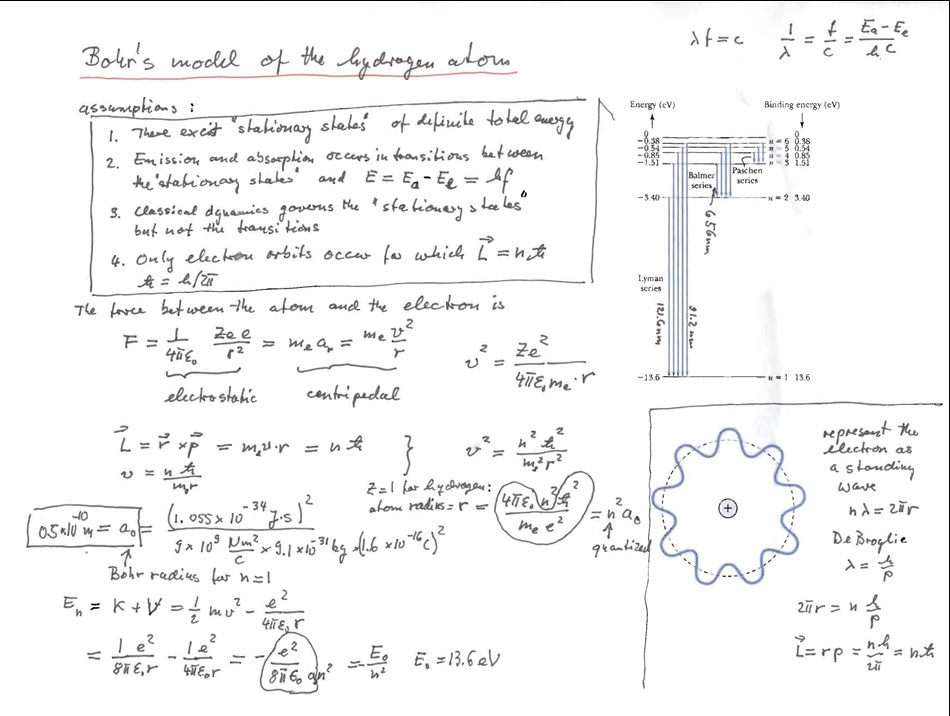 λf = c   1/λ = f/c = (Ea - Ee)/(hc)
Bohr's model of the hydrogen atom
assumptions:
1. There excit "stationary states" of definite total energy
2. Emission and absorption occurs in transitions between
the "stationary states" and E = Ea - Ee = hf
3. Classical dynamics governs the "stationary states"
but not the transitions
4. Only electron orbits occur for which L⃗ = nħ
ħ = h/2π
Energy (eV)   Binding energy (eV)
0   0
-0.38   n = 6 0.38
-0.54   n = 5 0.54
-0.85   n = 4 0.85
-1.51   n = 3 1.51
Balmer series
Paschen series
-3.40   n = 2 3.40
656nm
Lyman series
121.6nm
91.2nm
-13.6   n = 1 13.6
The force between the atom and the electron is
F = 1/(4πε₀) Zee/r² = me ar = me v²/r   v² = Ze²/(4πε₀me·r)
electrostatic   centripedal
L⃗ = r⃗ × p⃗ = mₑv·r = nħ } v² = n²ħ²/(mₑ²r²)
v = nħ/(mₑr)
Z=1 for hydrogen:
atom radius = r = (4πε₀ n²ħ²)/(me e²) = n²a₀
quantized
0.5×10⁻¹⁰m = a₀ = (1.055×10⁻³⁴ J·s)²/(9×10⁹ Nm²/C × 9.1×10⁻³¹kg × (1.6×10⁻¹⁶C)²
Bohr radius for n=1
En = K + V = 1/2 mv² - e²/(4πε₀r)
= 1e²/(8πε₀r) - 1e²/(4πε₀r) = -e²/(8πε₀a₀n²) = -E₀/n²   E₀ = 13.6 eV
+
represent the
electron as
a standing
wave
nλ = 2πr
De Broglie
λ = h/p
2πr = n h/p
L⃗ = rp = nh/2π = nħ